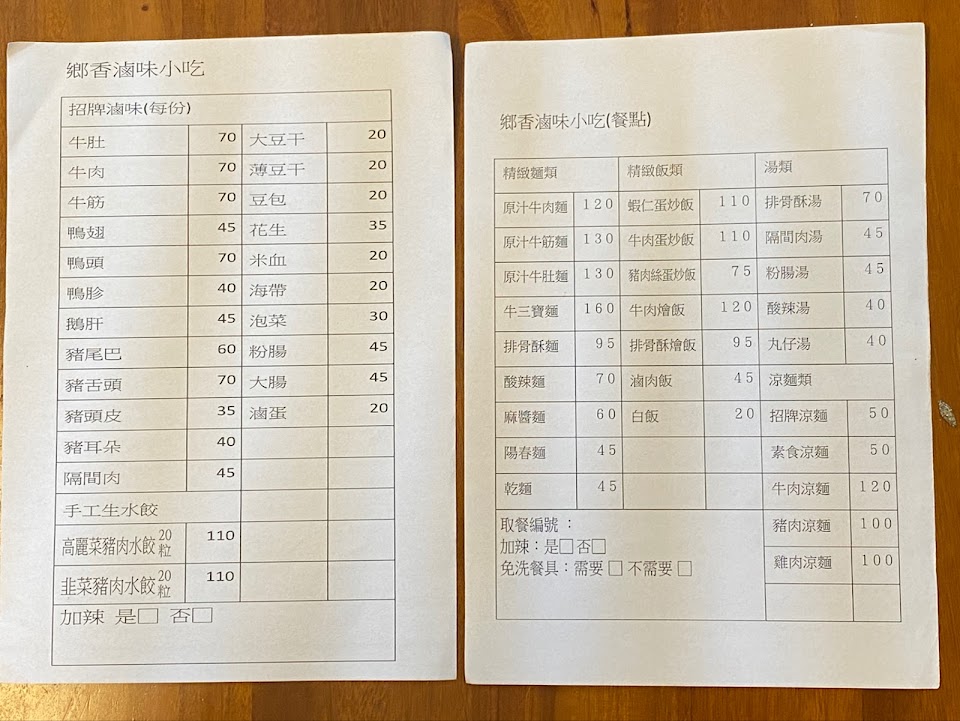 鄉香滷味小吃
招牌滷味(每份)
牛肚 70 大豆干 20
牛肉 70 薄豆干 20
牛筋 70 豆包 20
鴨翅 45 花生 35
鴨頭 70 米血 20
鴨胗 40 海帶 20
鵝肝 45 泡菜 30
豬尾巴 60 粉腸 45
豬舌頭 70 大腸 45
豬頭皮 35 滷蛋 20
豬耳朵 40
隔間肉 45
手工生水餃
高麗菜豬肉水餃20粒 110
韭菜豬肉水餃20粒 110
加辣 是□ 否□
鄉香滷味小吃(餐點)
精緻麵類 精緻飯類 湯類
原汁牛肉麵 120 蝦仁蛋炒飯 110 排骨酥湯 70
原汁牛筋麵 130 牛肉蛋炒飯 110 隔間肉湯 45
原汁牛肚麵 130 豬肉絲蛋炒飯 75 粉腸湯 45
牛三寶麵 160 牛肉燴飯 120 酸辣湯 40
排骨酥麵 95 排骨酥燴飯 95 丸仔湯 40
酸辣麵 70 滷肉飯 45 涼麵類
麻醬麵 60 白飯 20 招牌涼麵 50
陽春麵 45 素食涼麵 50
乾麵 45 牛肉涼麵 120
取餐編號 : 豬肉涼麵 100
加辣:是□否□
免洗餐具:需要□ 不需要□ 雞肉涼麵 100